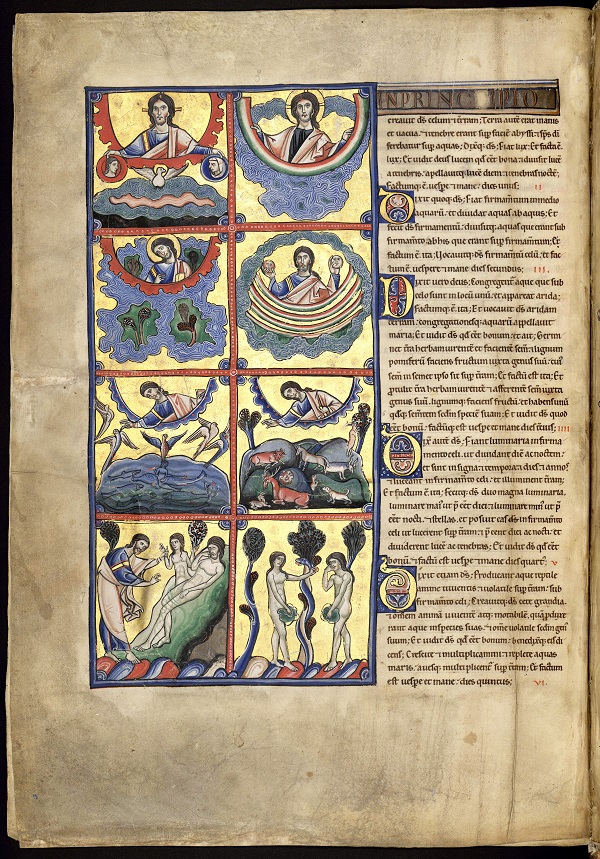 IN PRINCIPIO
creauit ds̄ celum ⁊ t̄ram; Terra autē erat inanis
et uacua. ⁊ tenebre erant sup faciē abyssi: ⁊ sp̄s dī
ferebatur sup aquas; Dixitq; ds̄; Fiat lux; Et facta ē
lux; Et uidit deus lucem qd̄ eēt bona: ⁊ diuisit lucē
a tenebris. appellauitq; lucē diem. ⁊ tenebras noctē;
Factumq; ē uesp̄e ⁊ mane dies unus; II
Dixit quoq; ds̄; Fiat firmamentū in medio
aquarū et diuidat aquas ab aquis; Et
fecit ds̄ firmamentū. diuisitq; aquas que erant sub
firmam̄to. ab his que erant sup firmam̄tum; Et
factum ē ita; Uocauitq; ds̄ firmam̄tum celū; et fac
tum ē uespere et mane dies secundus; III.
Dixit uero deus; Congregent̄ aque que sub
celo sunt in locū unū. et appareat arida;
Factumq; ē ita; Et uocauit ds̄ aridam
terram. congregationesq; aquarū appellauit
maria; Et uidit ds̄ qd̄ eēt bonum: et ait; Germi
net t̄ra herbam uirentē et facientē sem̄. ⁊ lignum
pomiferū faciens fructum iuxta genus suū. cui
sem̄ in semet ipso sit sup t̄ram; Et factū est ita; Et
p̄tulit t̄ra herbam uirentē ⁊ afferentē sem̄ iuxta
genus suū. lignumq; faciens fructū et habens unū
qdq; sem̄tem sedm specie suam; Et uidit ds̄ quod
eēt bonū; factūq; est uesp̄e et mane dies tertius; IIII
Dixit autē ds̄; Fiant luminaria in firma
mento celi. ut diuidant diē ac noctem:
et sint in signa ⁊ tempora ⁊ dies ⁊ annos.
ut luceant in firmam̄to celi. et illuminent t̄ram;
Et factum ē ita; Fecitq; ds̄ duo magna luminaria.
luminare maius ut p̄eet diei: ⁊ luminare minus ut p̄
eēt nocti. ⁊ stellas. et posuit eas ds̄ in firmam̄to
celi ut lucerent sup t̄ram. ⁊ p̄eent diei ac nocti. ⁊
diuiderent lucē ac tenebras; Et uidit ds̄ qd̄ eēt
bonū. ⁊ factū est uesp̄e ⁊ mane dies quart̄; V
Dixit etiam ds̄; Producant aque reptile
anime uiuentis ⁊ uolatile sup t̄ram. sub
firmam̄to celi; Creauitq; ds̄ cete grandia.
⁊ omem animā uiuentē atq; motabilē. quā pduxe
rant aque in species suas. ⁊ ome uolatile sedm gen̄
suum; Et uidit ds̄ qd̄ eēt bonum: benedixitq; eis di
cens; Crescite ⁊ multiplicamini ⁊ replete aquas
maris. auesq; multiplicent̄ sup t̄ram; Et factum
est uesp̄e et mane dies quintus; VI.